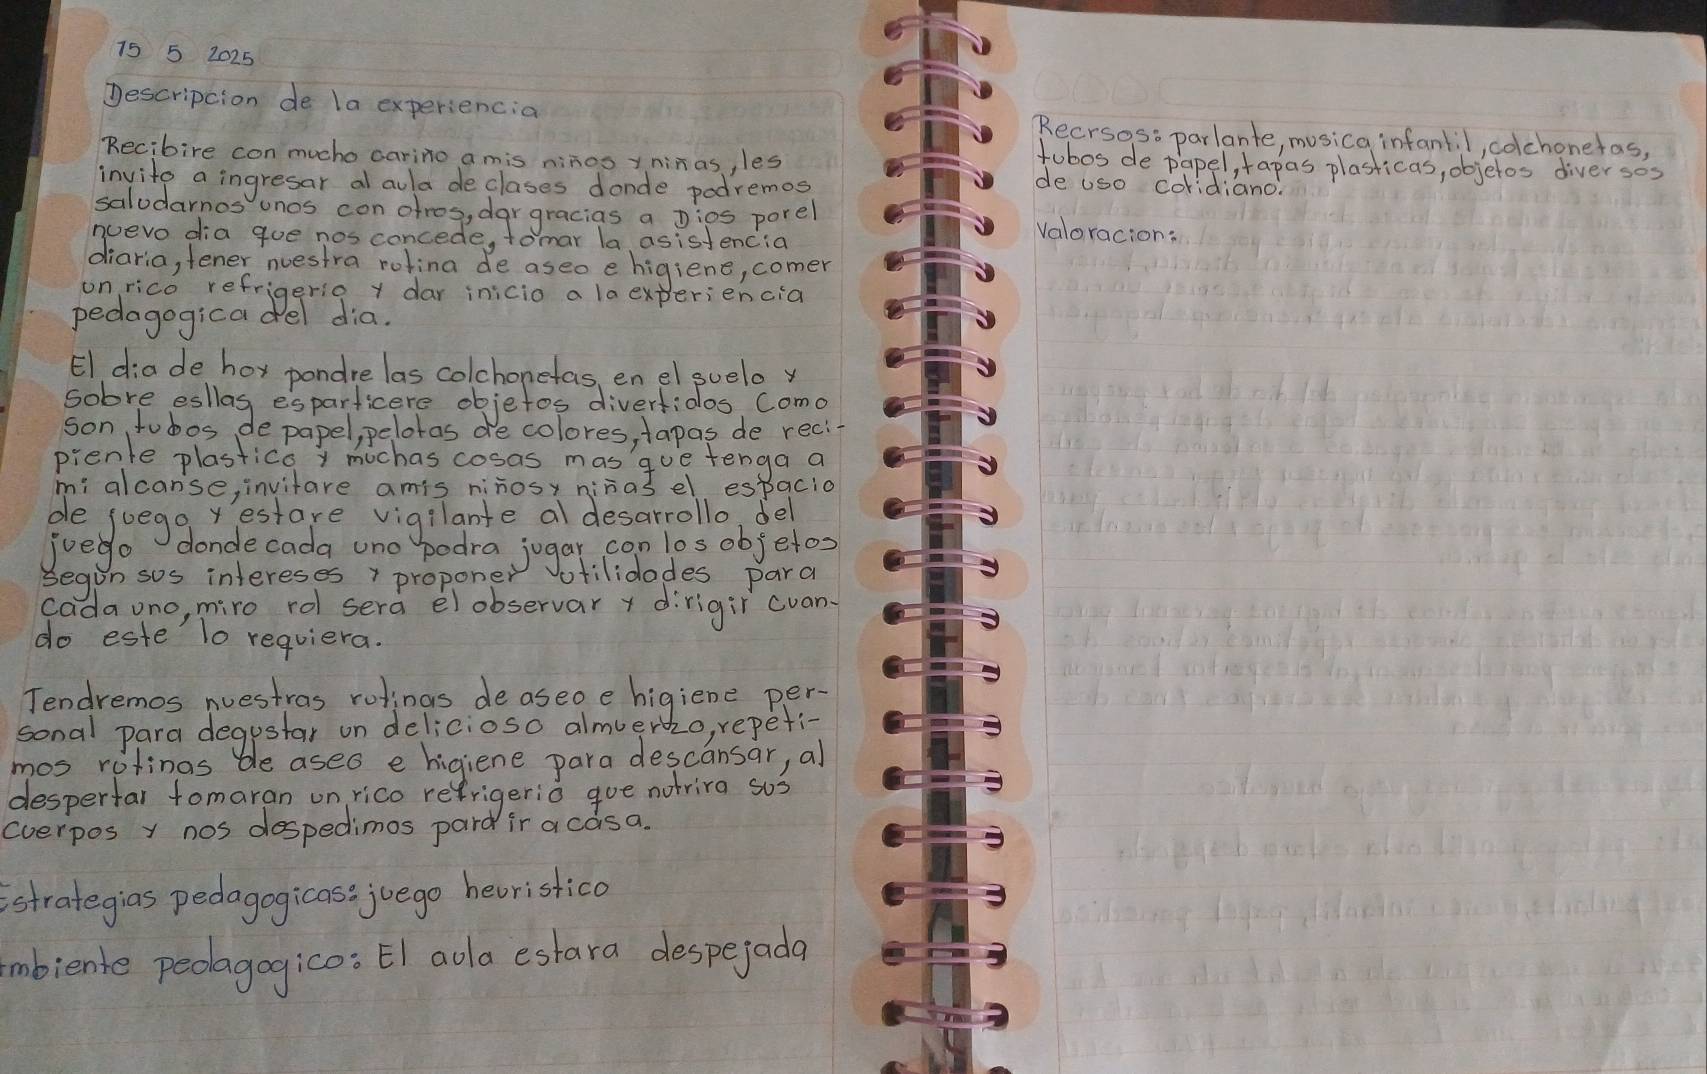 15 5 2025
Descripcion de la experiencia
Recibire con mucho cariño a mis niños y niñas, les
invito a ingresar al aula de clases donde podremos
saludarnos unos con otros, dar gracias a Dios porel
nuevo dia que nos concede, tomar la asistencia
diaria, tener nuestra rutina de aseo e higiene, comer
un rico refrigerio y dar inicio a la experiencia
pedagogica del dia.
El dia de hoy pondre las colchonetas en el suelo y
sobre esllas esparticere objetos divertidos como
son tubos de papel, pelotas de colores, tapas de reci-
piente plastico y muchas cosas mas que tenga a
mi alcanse, invitare amis niños y niñas el espacio
de juego y estare vigilante al desarrollo del
juego donde cada uno podra jugar con los objetos
segun sus intereses y proponer utilidades para
cada uno, miro rol sera el observar y dirigir cuan-
do este lo requiera.
Tendremos nuestras rutinas de aseo e higiene per-
sonal para degustar un delicioso almuerzo, repeti-
mos rutinas de aseo e higiene para descansar, al
despertar tomaran un rico refrigerio que nutrira sus
cuerpos y nos despedimos para ir a casa.
Estrategias pedagogicas: juego heuristico
Ambiente pedagogico: El aula estara despejada
Recrsos: parlante, musica infantil, colchonetas,
tubos de papel, tapas plasticas, objetos diversos
de uso cotidiano.
Valoracion: